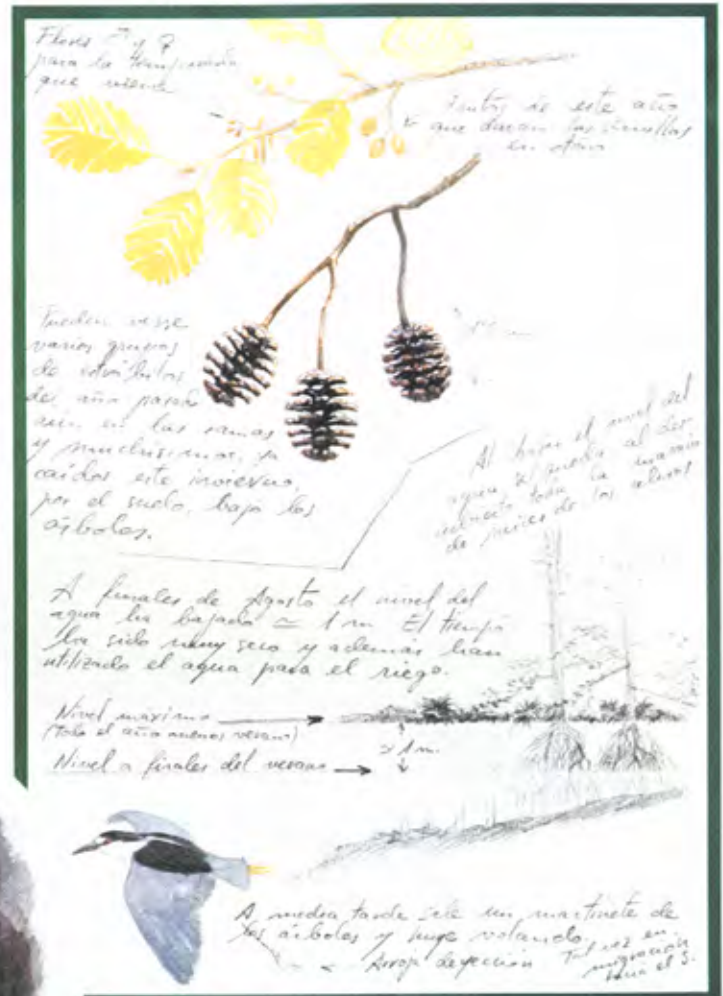 Flores ♂ y ♀
para la temporada
que viene
Frutos de este año
que darán las semillas
en otoño
Pueden verse
varios grupos
de estróbilos
del año pasado
aún en las ramas
y muchísimos, ya
caídos este invierno,
por el suelo, bajo los
árboles.
Al bajar el nivel del
agua queda al des-
cubierto toda la maraña
de raíces de los alisos
A finales de Agosto el nivel del
agua ha bajado ≃ 1 m El tiempo
ha sido muy seco y además han
utilizado el agua para el riego.
Nivel maximo
(todo el año menos verano)
≃ 1 m.
Nivel a finales del verano
A media tarde sale un martinete de
los árboles y huye volando.
Arroja deyección
Tal vez en
migración
hacia el S.